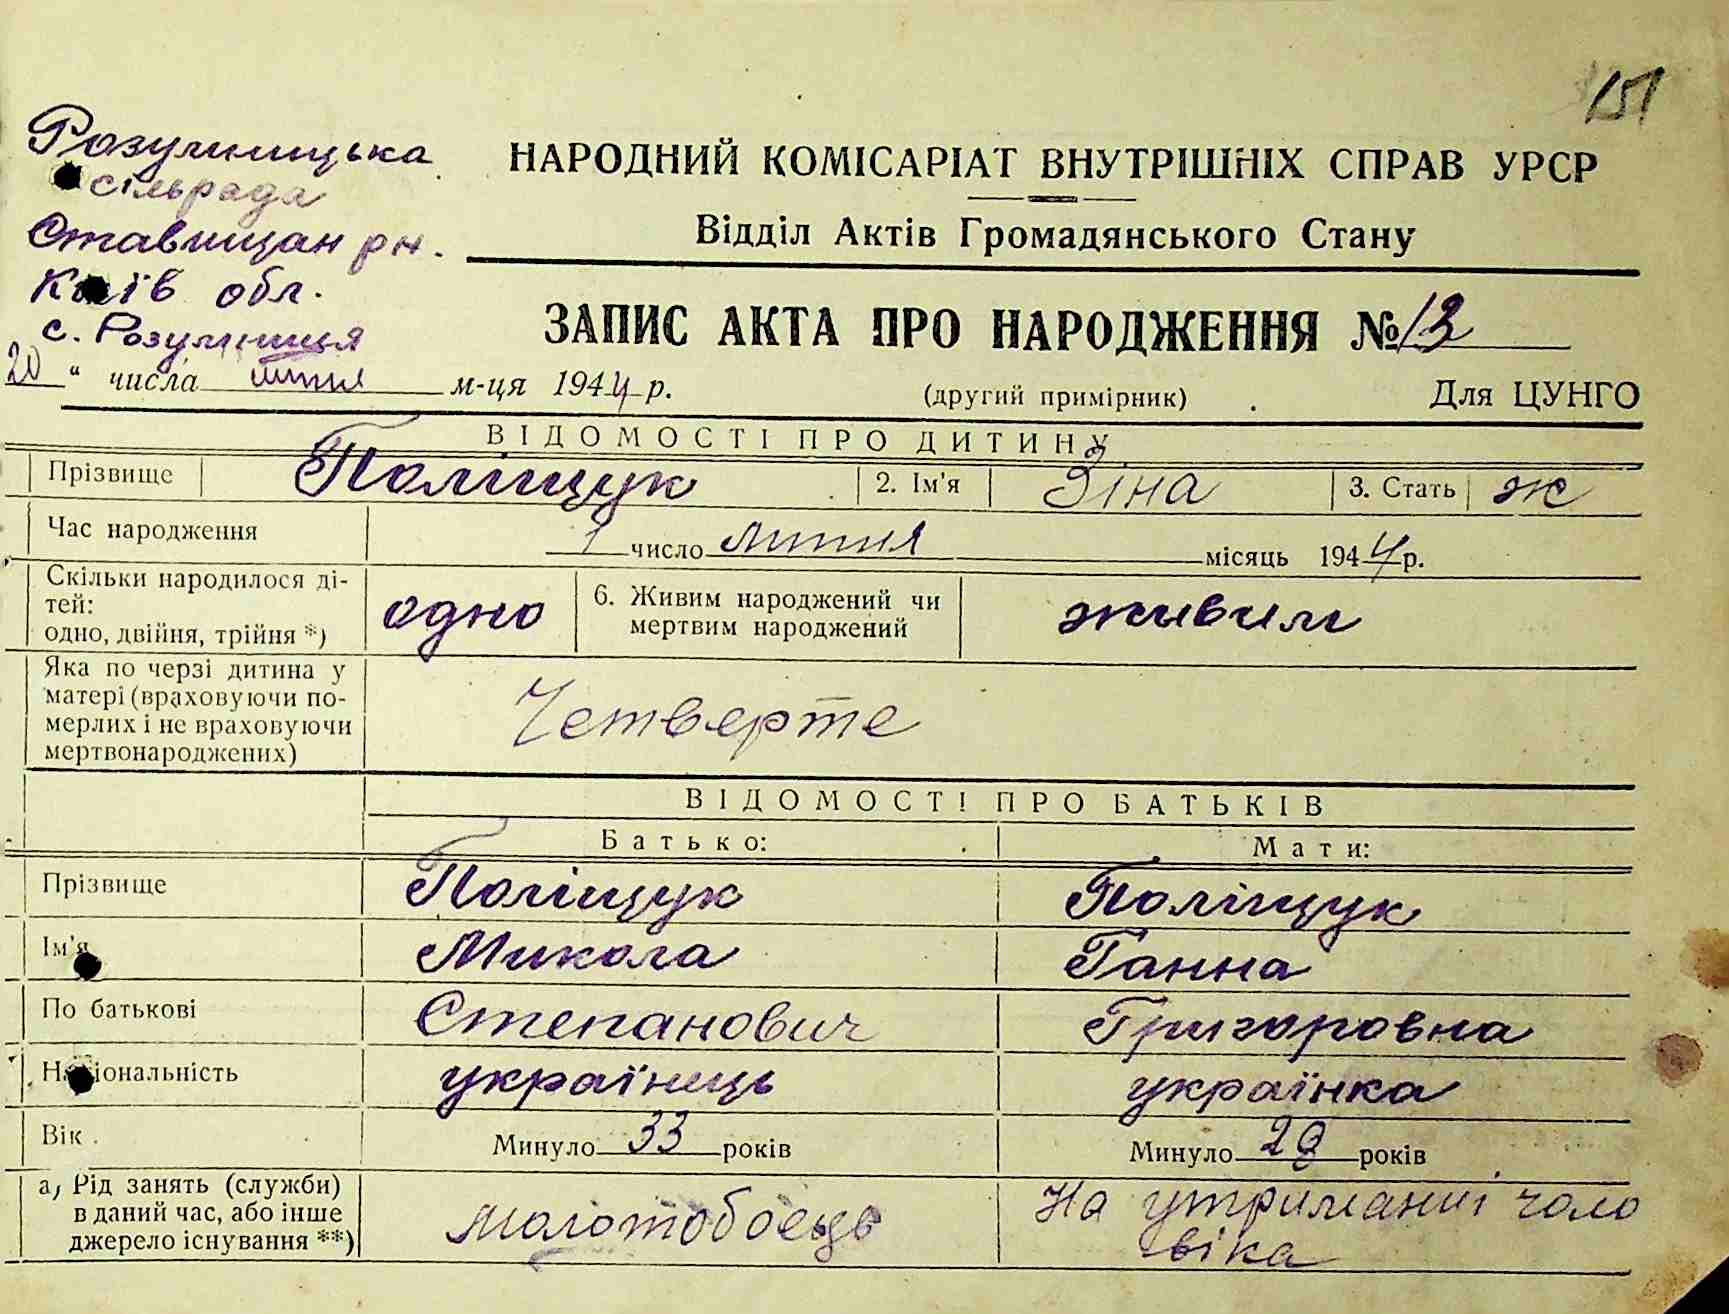 151
Розумницька
сільрада
Ставищан рн.
Київ обл.
с. Розумниця
НАРОДНИЙ КОМІСАРІАТ ВНУТРІШНІХ СПРАВ УРСР
Відділ Актів Громадянського Стану
ЗАПИС АКТА ПРО НАРОДЖЕННЯ № 13
20 " числа липня м-ця 1944 р. (другий примірник) Для ЦУНГО
ВІДОМОСТІ ПРО ДИТИНУ
Прізвище Поліщук 2. Ім'я Зіна 3. Стать ж
Час народження 1 число липня місяць 1944 р.
Скільки народилося ді-
тей:
одно, двійня, трійня *) одно 6. Живим народжений чи
мертвим народжений живим
Яка по черзі дитина у
матері (враховуючи по-
мерлих і не враховуючи
мертвонароджених) Четверте
ВІДОМОСТІ ПРО БАТЬКІВ
Батько: Мати:
Прізвище Поліщук Поліщук
Ім'я Микола Ганна
По батькові Степанович Григоровна
Національність українець українка
Вік Минуло 33 років Минуло 29 років
а) Рід занять (служби)
в даний час, або інше
джерело існування **) молотобоєць На утриманні чоло
віка